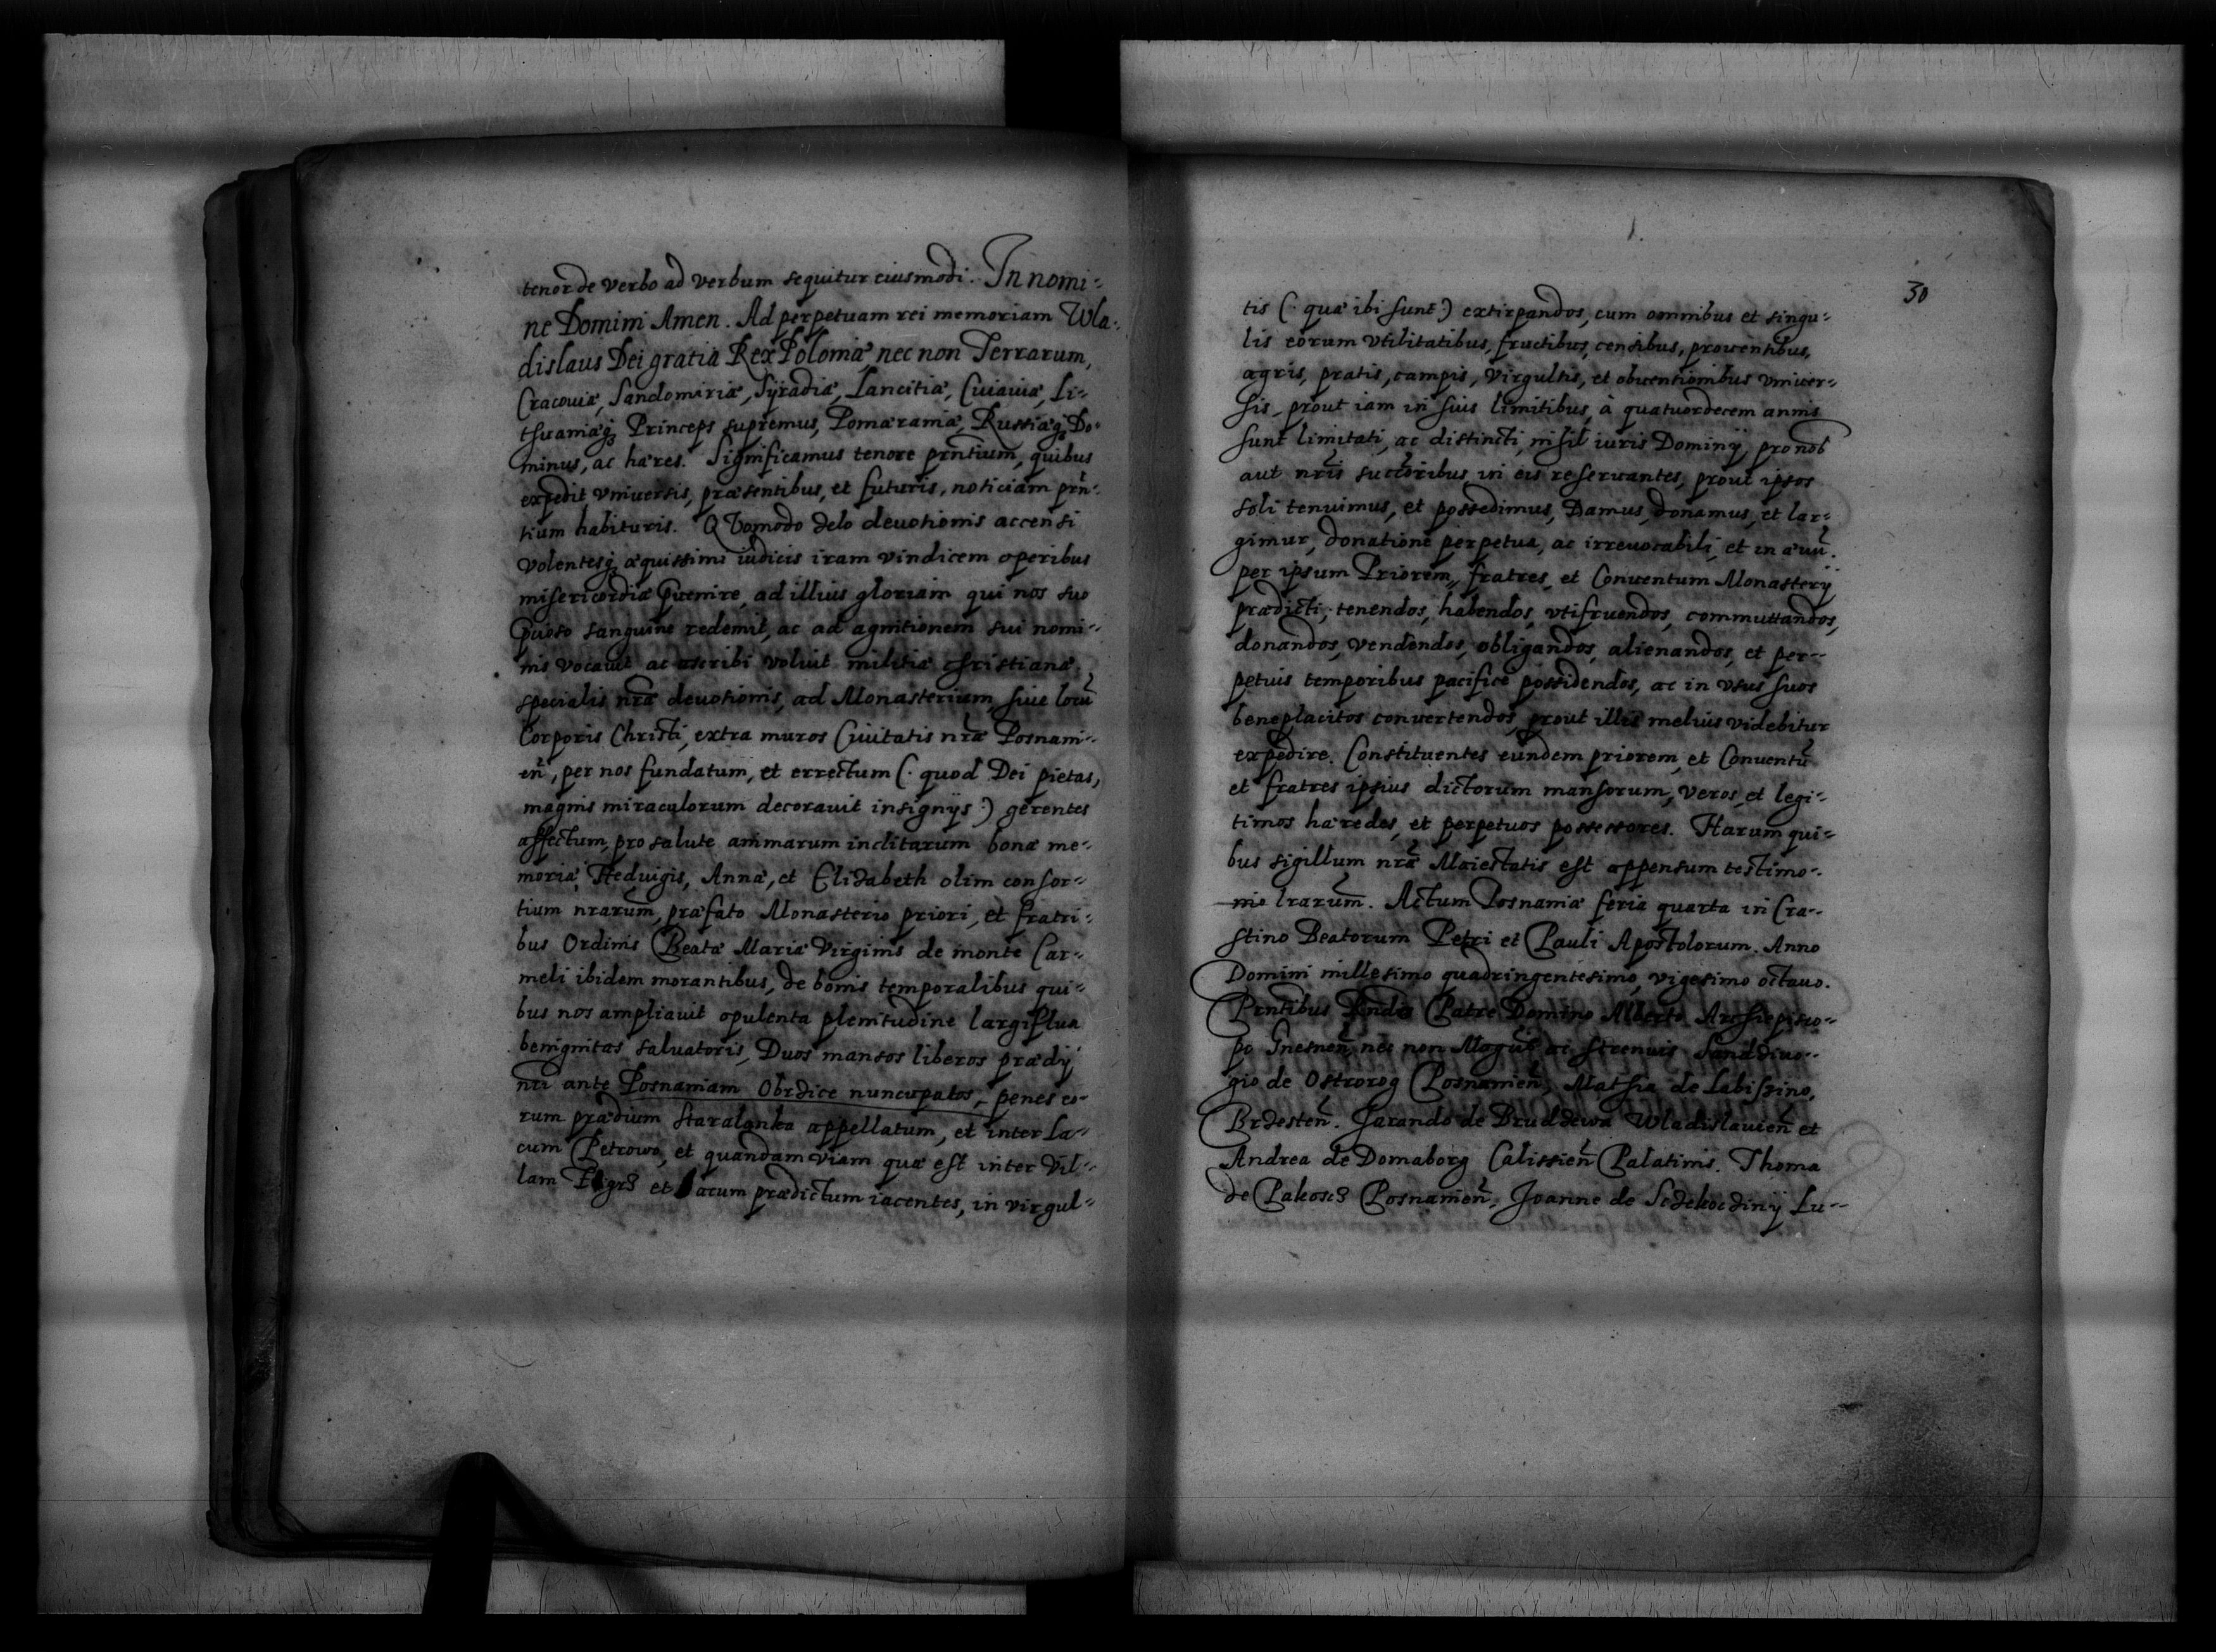 tenor de verbo ad verbum sequitur eiusmodi. In nomi-
ne Domini Amen. Ad perpetuam rei memoriam Wla-
dislaus Dei gratia Rex Poloniæ, nec non Terrarum,
Cracouiæ, Sandomiriæ, Syradiæ, Lancitiæ, Cuiauiæ, Li-
thuaniæq3 Princeps supremus, Pomæraniæ, Russiæq3 Do-
minus, ac hæres. Significamus tenore prñtium, quibus
expedit vniuersis, præsentibus, et futuris, noticiam prñ-
tium habituris. QVomodo zelo deuotionis accensi
volentesq3 æquissimi iudicis iram vindicem operibus
misericordiæ præuenire, ad illius gloriam qui nos suo
prætioso sanguine redemit, ac ad agnitionem sui nomi-
nis vocauit ac ascribi voluit militiæ christianæ,
specialis nr̃æ deuotionis, ad Monasterium, siue locũ
Corporis Christi, extra muros Ciuitatis nr̃æ Posnani-
eñ, per nos fundatum, et errectum (: quod Dei pietas,
magnis miraculorum decorauit insignijs :) gerentes
affectum, pro salute animarum inclitarum bonæ me-
moriæ, Heduigis, Annæ, et Elizabeth olim consor-
tium nrarum̃, præfato Monasterio priori, et fratri-
bus Ordinis Beatæ Mariæ Virginis de monte Car-
meli ibidem morantibus, de bonis temporalibus qui-
bus nos ampliauit opulenta plenitudine largiflua
benignitas saluatoris, Duos mansos liberos prædij
nri ante Posnaniam Obrzice nuncupatos, penes eo-
rum prædium staralanka appellatum, et inter La-
cum Petrowo, et quandam viam quæ est inter Vil-
lam et Lacum prædictum iacentes, in virgul-
30
tis (: quæ ibi sunt :) extirpandos, cum omnibus et singu-
lis eorum vtilitatibus, fructibus, censibus, prouentibus,
agris, pratis, campis, virgultis, et obuentionibus vniuer-
sis, prout iam in suis limitibus, à quatuordecem annis
sunt limitati, ac distincti, nihil iuris Dominij, pro nob
aut nr̃is succ̃oribus, in eis reseruantes, prout ipsos
soli tenuimus, et possedimus, Damus, donamus, et lar-
gimur, donatione perpetua, ac irreuocabili, et in æuũ.
per ipsum Priorem, fratres, et Conuentum Monasterij
prædicti, tenendos, habendos, vtifruendos, commuttandos,
donandos, vendendos, obligandos, alienandos, et per-
petuis temporibus pacificè possidendos, ac in vsus suos
beneplacitos conuertendos, prout illis melius videbitur
expedire. Constituentes eundem priorem, et Conuentũ
et fratres ipsius dictorum mansorum, veros, et legi-
timos hæredes, et perpetuos possessores. Harum qui-
bus sigillum nr̃æ Maiestatis est appensum testimo-
nio lrarum̃. Actum Posnaniæ feria quarta in Cra-
stino Beatorum Petri et Pauli Apostolorum. Anno
Domini millesimo quadringentesimo, vigesimo octauo.
Prñtibus Rndo Patre Domino Alberto Archiepisco-
po Gnesneñ, nec non Magcis ac strenuis Sandziuo-
gio de Ostrorog Posnanieñ, Mathia de Labiszino,
Brzesteñ. Jarando de Brudzewa Wladislauieñ et
Andrea de Domaborg Calissieñ Palatinis. Thoma
de Pakosc3 Posnanieñ, Joanne de Lu-